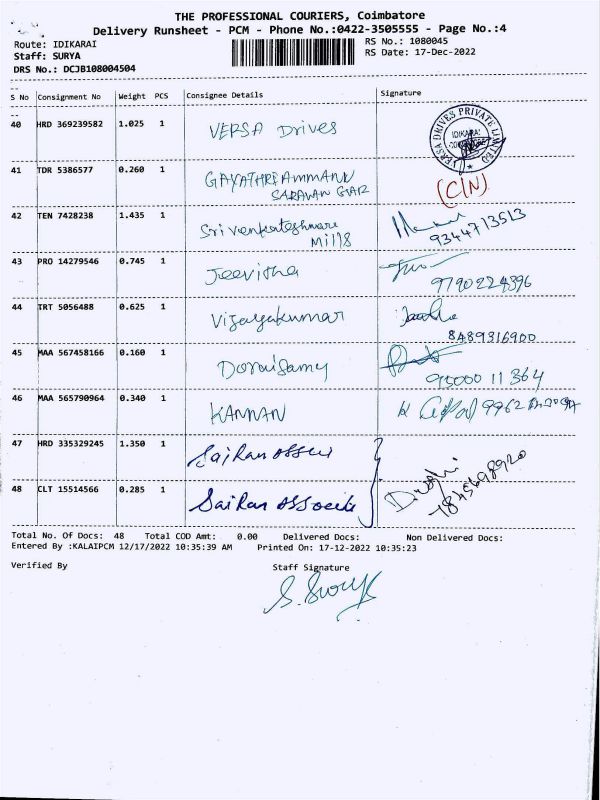 THE PROFESSIONAL COURIERS, Coimbatore
Delivery Runsheet - PCM - Phone No.:0422-3505555 - Page No.:4
Route: IDIKARAI
RS No.: 1080045
Staff: SURYA
RS Date: 17-Dec-2022
DRS No.: DCJB108004504
S No Consignment No Weight PCS Consignee Details Signature
40 HRD 369239582 1.025 1 VERSA Drives
VERSA DRIVES PRIVATE LIMITED
IDIKARAI
41 TDR 5386577 0.260 1 GAYATHRI AMMANN
SARAVAN GAR
(C/N)
42 TEN 7428238 1.435 1 Sri venkateshwara
Mills
9344713513
43 PRO 14279546 0.745 1 Jeevitha
9790224396
44 TRT 5056488 0.625 1 Vijayakumar
8489316900
45 MAA 567458166 0.160 1 Doraisamy
95000 11 364
46 MAA 565790964 0.340 1 KANNAN K
47 HRD 335329245 1.350 1 Sairam
48 CLT 15514566 0.285 1 Sairam
7845698920
Total No. Of Docs: 48 Total COD Amt: 0.00 Delivered Docs: Non Delivered Docs:
Entered By :KALAIPCM 12/17/2022 10:35:39 AM Printed On: 17-12-2022 10:35:23
Verified By Staff Signature
S. Surya